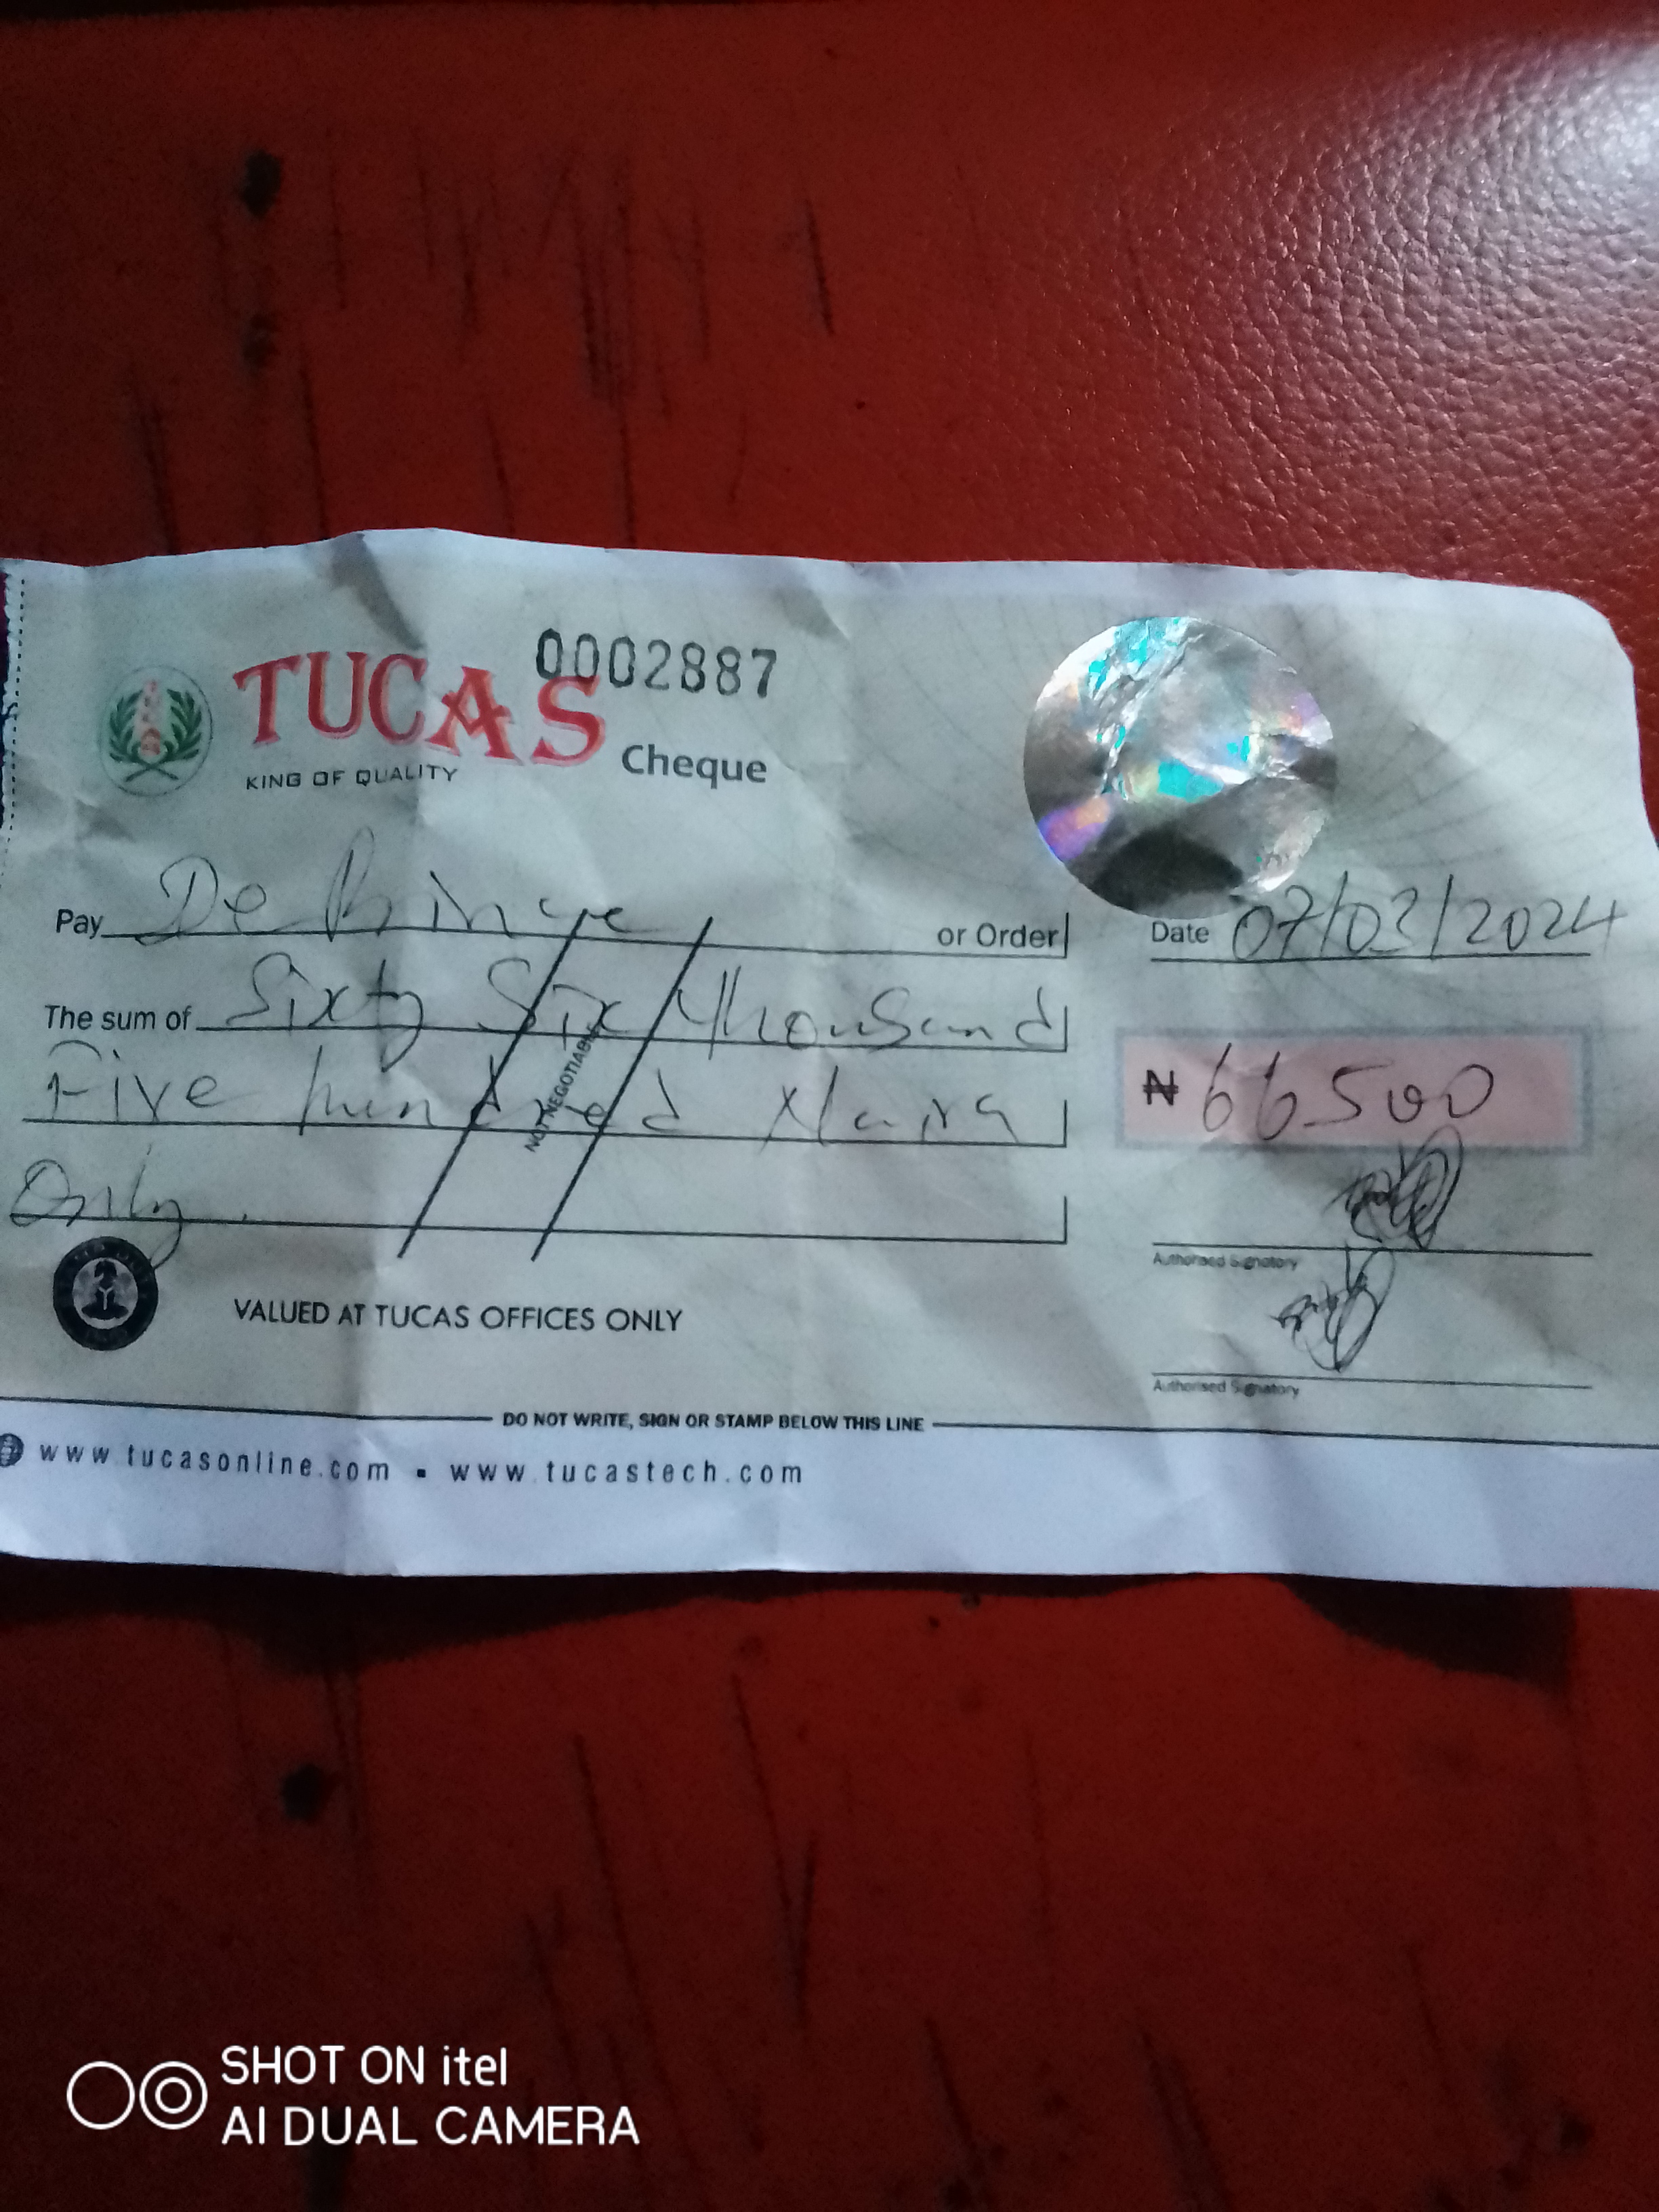 0002887
TUCAS
KING OF QUALITY
Cheque
Pay De Prince or Order
Date 07/03/2024
The sum of Sixty Six Thousand
Five hundred Naira
Only.
₦ 66500
NOT NEGOTIABLE
Authorised Signatory
Authorised Signatory
VALUED AT TUCAS OFFICES ONLY
DO NOT WRITE, SIGN OR STAMP BELOW THIS LINE
www.tucasonline.com ▪ www.tucastech.com
SHOT ON itel
AI DUAL CAMERA